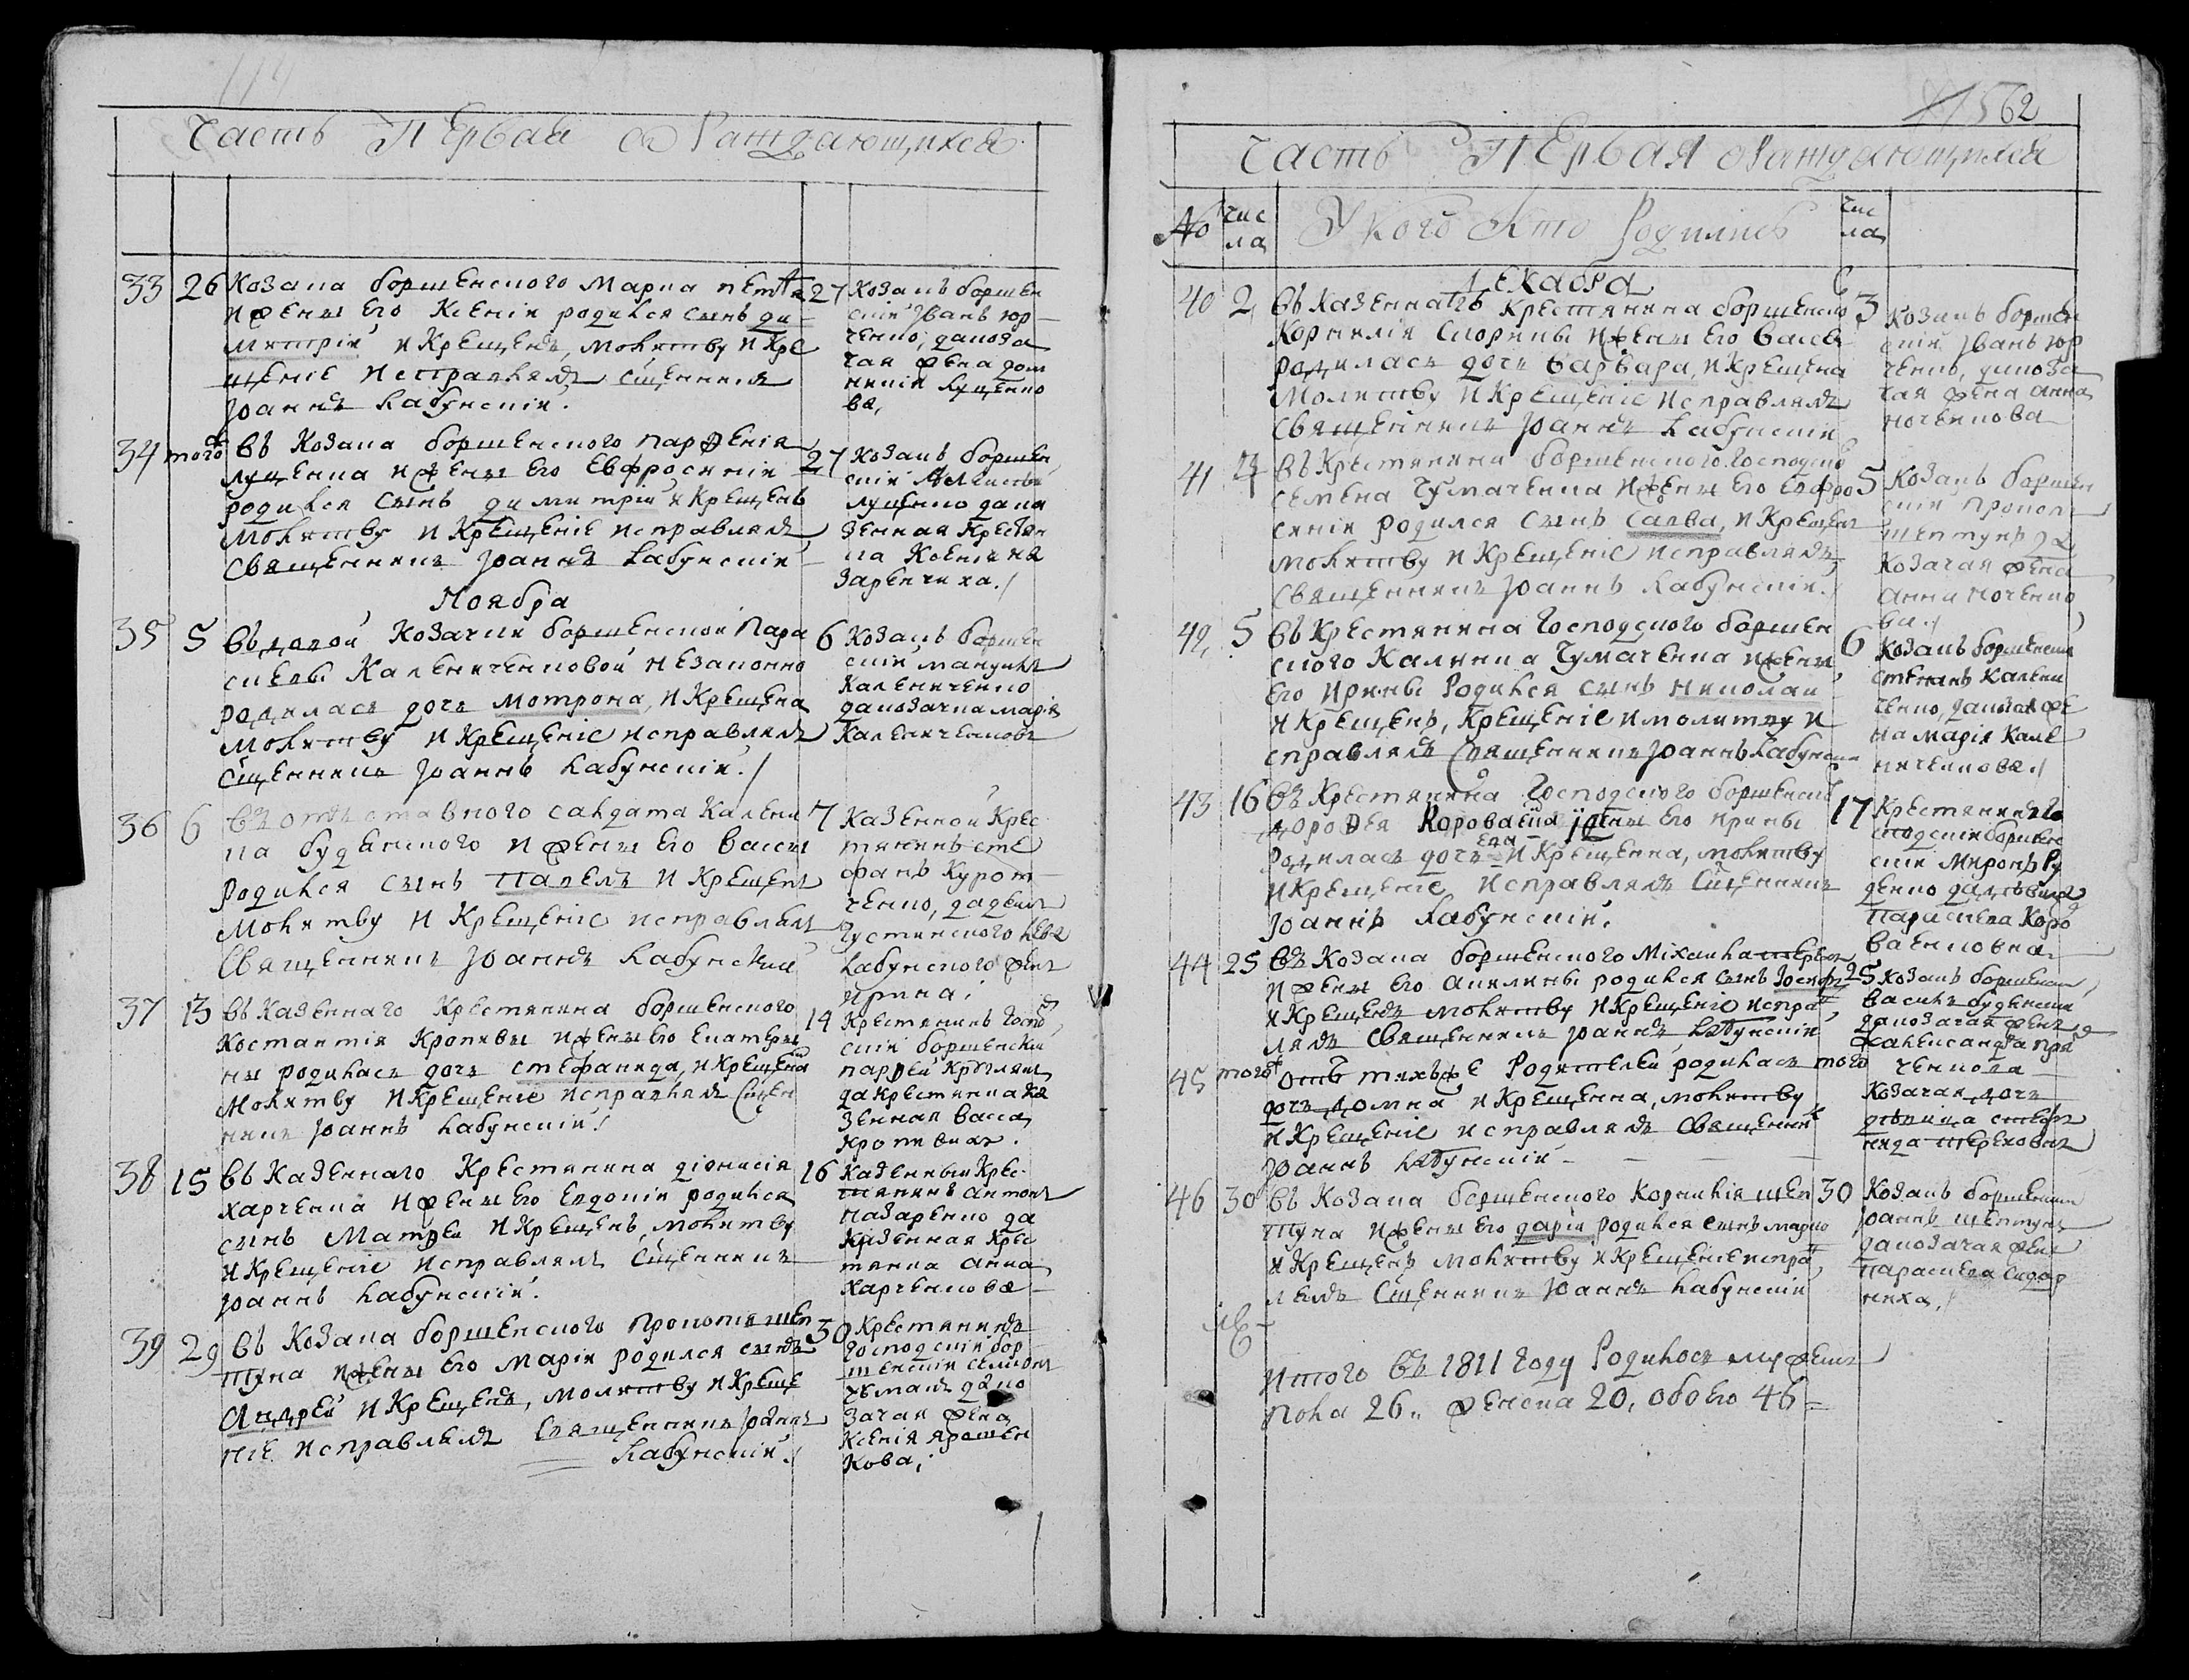 Часть Первая о Раждающихся
33 26 Козака боршенского Марка
и жены его Ксенїи родился сынъ ди
митрїй и крещенъ, молитву и кре
щенїе исправлялъ сщенникъ
Іоаннъ Кабунскїй.
27 Козакъ боршен
скїй Іванъ юр
ченко, да коза
чая жена дом
никїя Луценко
ва,
34 того въ Козака боршенского парфенїя
луценка и жены его Евфросинїи
родился сынъ димитрїй и крещенъ
молитву и крещенїе исправлялъ
священникъ Іоаннъ Кабунскїй
27 Козакъ боршен
скїй
луценко да ка
зенная крестян
ка Ксенїя на
заренчиха./
Ноября
35 5 въ вдовой Козачки боршенской Пара
скевы Калениченковой незаконно
родилась дочь мотрона, и крещена
молитву и крещенїе исправлялъ
сщенникъ Іоаннъ Кабунскїй./
6 Козакъ боршен
скїй мануилъ
Каленченко
да козачка марїя
Каленченкова
36 6 въ отставного салдата Калени
ка буденского и жены его вассы
родился сынъ Павелъ и крещенъ
молитву и крещенїе исправлялъ
Священникъ Іоаннъ Кабунскїй
7 Казенной Крес
тянинъ сте
фанъ Курот
ченко, да
густинского
Кабунского жена
ирина.
37 13 въ Казеннаго Крестянина боршенского
Костантїя Кропивы и жены его Екатери
ны родилась дочь стефанида, и крещена
молитву и крещенїе исправлялъ сщен
никъ Іоаннъ Кабунскїй!
14 Крестянинъ госпо
скїй боршенскїй
парфей
да крестянка ка
зенная васса
кропивная.
38 15 въ Казеннаго Крестянина дїонисїя
харченка и жены его Евдокїи родился
сынъ Матфей и крещенъ, молитву
и крещенїе исправлялъ сщенникъ
Іоаннъ Кабунскїй.
16 Казенный Крес
тянинъ антонъ
назаренко да
казенная крес
тянка анна
харченкова
39 29 въ Козака боршенского Прокопїя шеп
туна и жены его марїи родился сынъ
Андрей и крещенъ, молитву и креще
нїе исправлялъ Священникъ Іоаннъ
Кабунскїй./
30 Крестянинъ
господскїй бор
шенскїй семионъ
чумакъ да ко
зачая жена
Ксенїя ярошен
кова.
562
Часть Первая о Раждающихся
№ Чис
ла
У кого Кто Родились
Чис
ла
Декабря
40 2 въ Казеннагъ Крестянина боршенско
Корнилїя Скорины и жены его вассы
родилась дочь варвара, и крещена
Молитву и крещенїе исправлялъ
священникъ Іоаннъ Кабунскїй
3 Козакъ боршен
скїй Іванъ юр
ченко, да коза
чая жена анна
ноченкова
41 4 въ Крестянина боршенского господско
семена Чумаченка и жены его евфро
синїи родился сынъ Савва, и крещенъ
молитву и крещенїе исправлялъ
священникъ Іоаннъ Кабунскїй./
5 Козакъ боршен
скїй прокопъ
шептунъ да
козачая жена
анна ноченко
ва./
42, 5 въ Крестянина господского боршен
ского Калинника Чумаченка и жены
его ирины Родился сынъ николай
и крещенъ, крещенїе и молитву и
справлялъ священникъ Іоаннъ Кабунскїй
6 Козакъ боршенскїй
степанъ Кален
ченко, да козач же
на марїя Кале
ниченкова./
43 16 въ Крестянина господского боршенско
дорофея Короваенка и жены его ирины
родилась дочь Ева и крещенна, молитву
и крещенїе исправлялъ сщенникъ
Іоаннъ Кабунскїй.
17 Крестянинъ го
сподскїй боршен
скїй миронъ Ру
денко да
Параскева Коро
ваенковна
44 25 въ Козака боршенского Михаила
и жены его акилины родился сынъ Іосифъ
и крещенъ молитву и крещенїе испра
влялъ священникъ Іоаннъ Кабунскїй
25 Козакъ боршенскїй
василь буденскїй
да козачая жена
Александра
ченкова
45 того отъ техъже Родителей родилась
дочь домна и крещенна, молитву
и крещенїе исправлялъ священникъ
Іоаннъ Кабунскїй
того
козачая дочь
девица стефа
нида
46 30 въ Козака боршенского Корнилїя шеп
туна и жены его дарїи родился сынъ марко
и крещенъ молитву и крещенїе испра
влялъ сщенникъ Іоаннъ Кабунскїй
30 Козакъ боршенскїй
Іоаннъ шептунъ
да козачая жена
параскева сидор
ниха./
Итого въ 1811 году Родилось мужеска
пола 26. женска 20, обоего 46